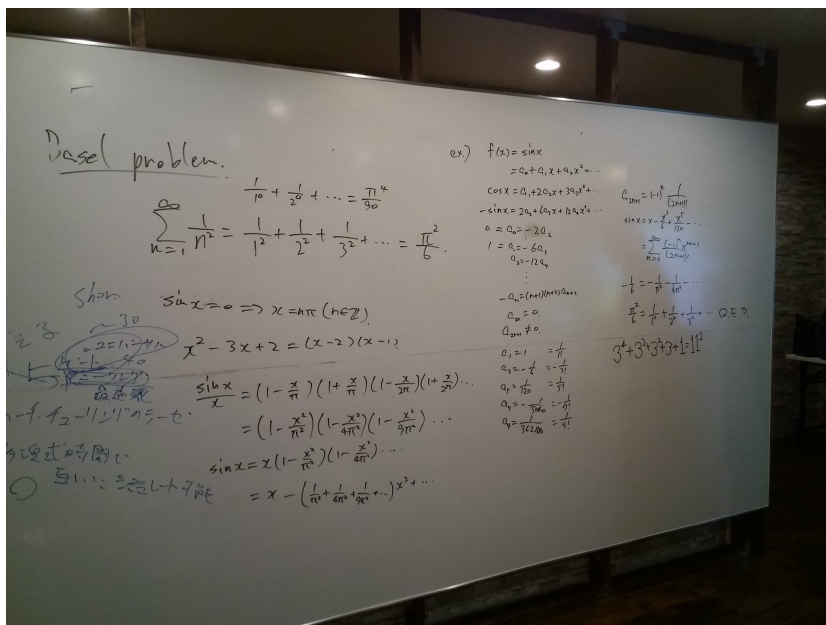 Basel problem.
1/1⁴ + 1/2⁴ + ··· = π⁴/90
∞∑n=1 1/n² = 1/1² + 1/2² + 1/3² + ··· = π²/6.
sin x = 0 => x = nπ (n∈Z)
x² - 3x + 2 = (x-2)(x-1)
sin x/x = (1 - x/π)(1 + x/π)(1 - x/2π)(1 + x/2π)···
= (1 - x²/π²)(1 - x²/4π²)(1 - x²/9π²)···
sin x = x(1 - x²/π²)(1 - x²/4π²)····
= x - (1/π² + 1/4π² + 1/9π² + ···)x³ + ···
ex.) f(x) = sin x
= a₀ + a₁x + a₂x² + ···
cos x = a₁ + 2a₂x + 3a₃x² + ···
-sin x = 2a₂ + 6a₃x + 12a₄x² + ···
0 = a₀ = -2a₂
1 = a₁ = -6a₃
a₂ = -12a₄
⋮
-aₙ = (n+1)(n+2)aₙ₊₂
a₂ₙ = 0
a₂ₙ₊₁ ≠ 0
a₁ = 1 = 1/1!
a₃ = -1/6 = -1/3!
a₅ = 1/120 = 1/5!
= -1/7!
= 1/9!
a₂ₙ₊₁ = (-1)ⁿ 1/(2n+1)!
sin x = x - x³/6 + x⁵/120 - ····
= ∞∑n=0 (-1)ⁿ x²ⁿ⁺¹/(2n+1)!
-1/6 = -1/π² - 1/4π² - ···
π²/6 = 1/1² + 1/2² + 1/3² + ··· Q.E.D.
3⁴+3³+3²+3+1=11²
show
~30